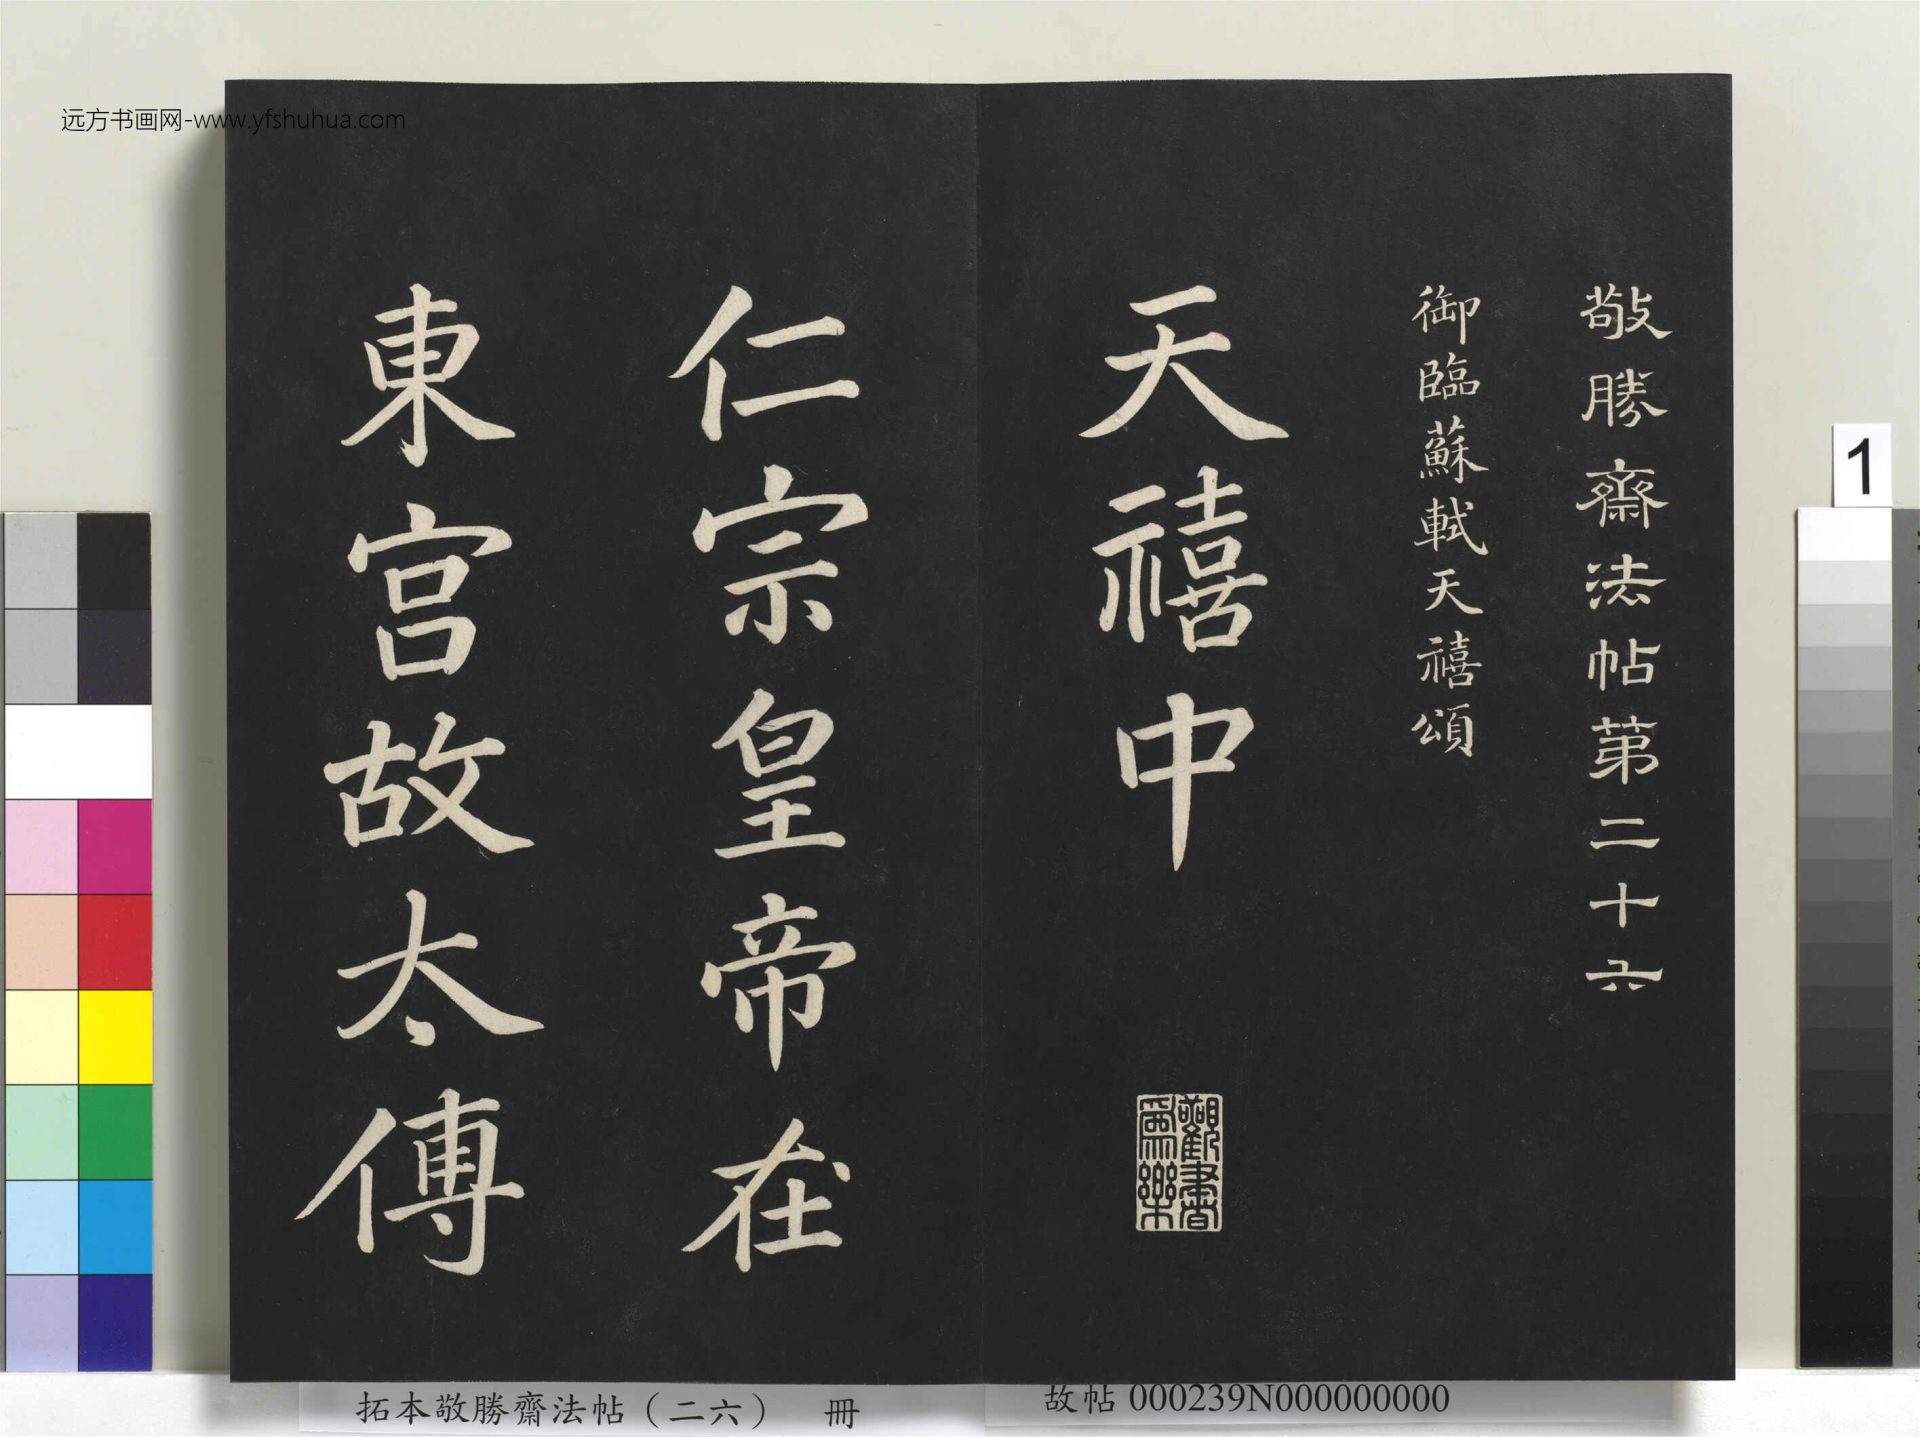 远方书画网-www.yfshuhua.com
敬勝齋法帖第二十六
御臨蘇軾天禧頌
天禧中
觀書為樂
仁宗皇帝在
東宮故太傅
1
拓本敬勝齋法帖（二六） 冊
故帖 000239N000000000